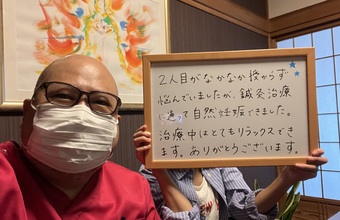 2人目がなかなか授からず
悩んでいましたが、鍼灸治療
に通って自然妊娠できました。
治療中はとてもリラックスでき
ます。ありがとうございます。